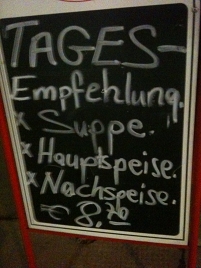 TAGES-
Empfehlung.
* Suppe.
* Hauptspeise.
* Nachspeise.
€ 8,70